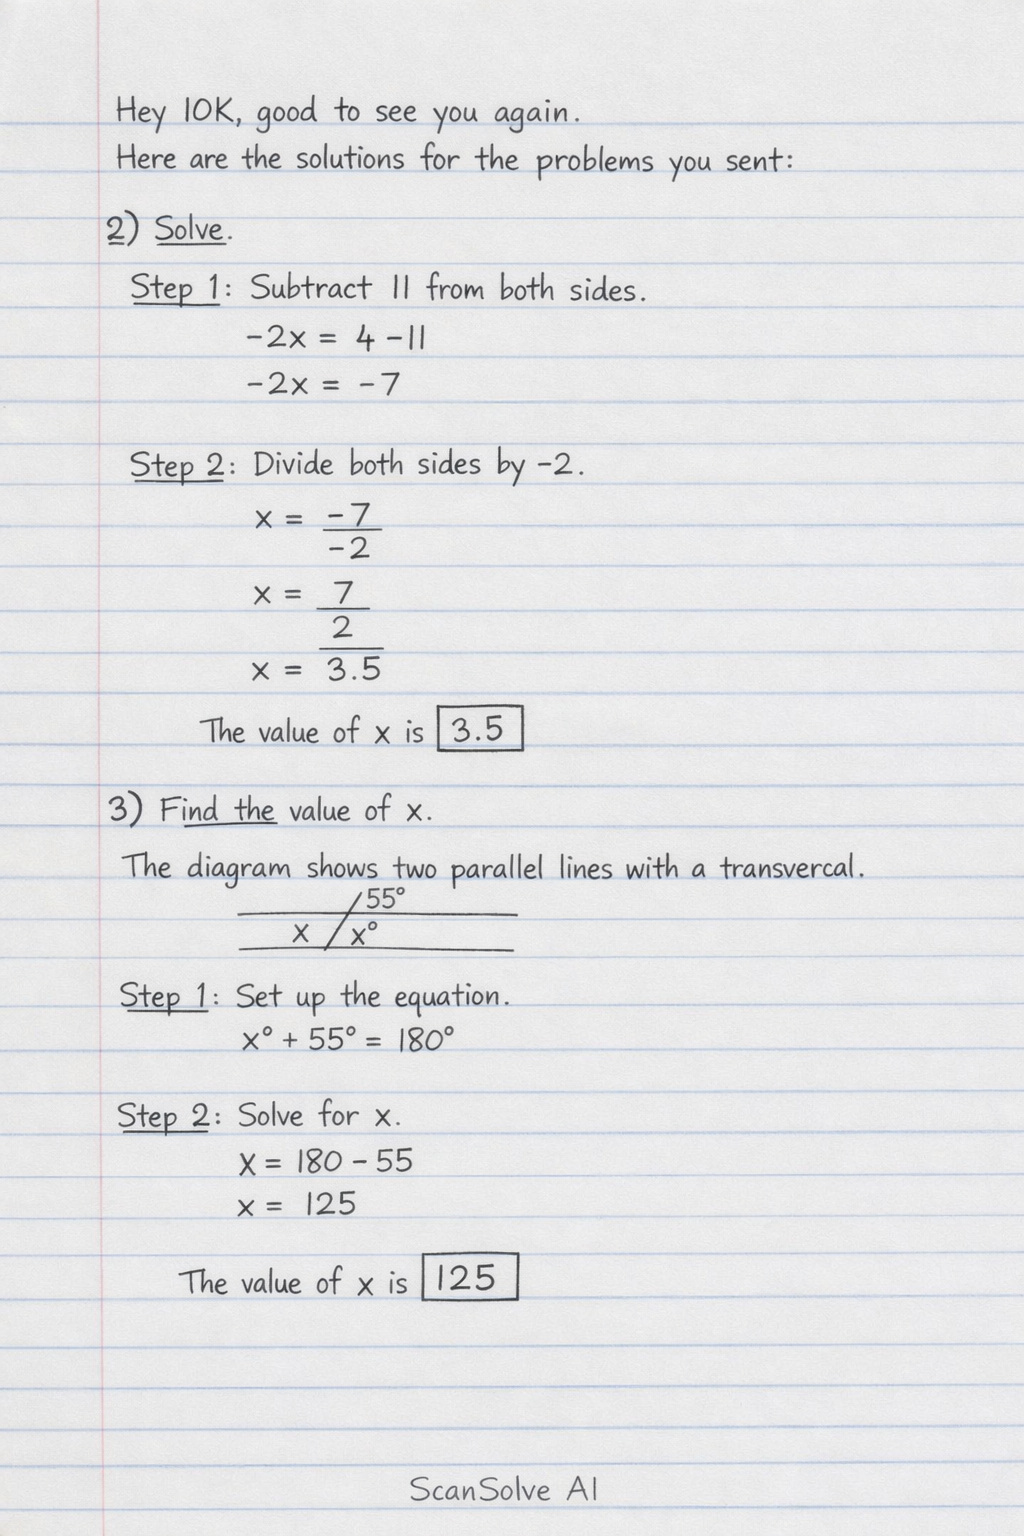 Hey 10K, good to see you again.
Here are the solutions for the problems you sent:
2) Solve.
Step 1: Subtract 11 from both sides.
-2x = 4 -11
-2x = -7
Step 2: Divide both sides by -2.
x = -7
-2
x = 7
2
x = 3.5
The value of x is 3.5
3) Find the value of x.
The diagram shows two parallel lines with a transvercal.
55°
x x°
Step 1: Set up the equation.
x° + 55° = 180°
Step 2: Solve for x.
x = 180 - 55
x = 125
The value of x is 125
ScanSolve AI